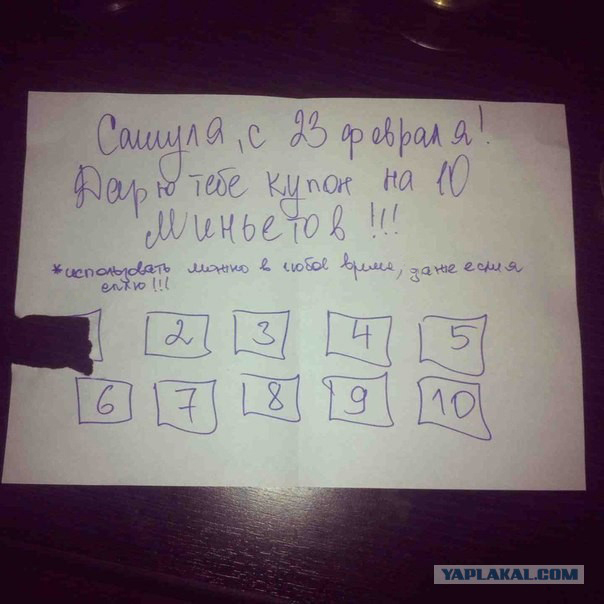 Сашуля, с 23 февраля!
Дарю тебе купон на 10
Миньетов!!!
*использовать можно в любое время, даже если я
сплю!!!
2 3 4 5
6 7 8 9 10
YAPLAKAL.COM